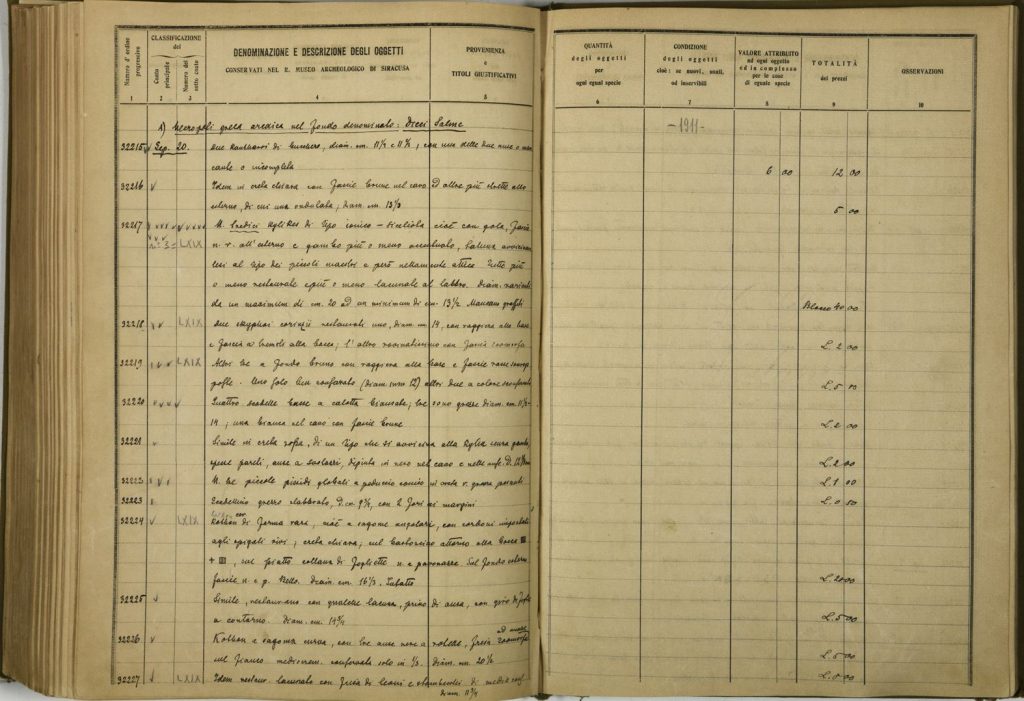 Numero d'ordine progressivo
CLASSIFICAZIONE del
Conto principale
Numero del sotto conto
DENOMINAZIONE E DESCRIZIONE DEGLI OGGETTI
CONSERVATI NEL R. MUSEO ARCHEOLOGICO DI SIRACUSA
PROVENIENZA
e
TITOLI GIUSTIFICATIVI
QUANTITÀ
degli oggetti
per
ogni ogni specie
CONDIZIONE
degli oggetti
cioè: se nuovi, usati,
od inservibili
VALORE ATTRIBUITO
ad ogni oggetto
ed in complesso
per le cose
di eguale specie
TOTALITÀ
dei prezzi
OSSERVAZIONI
1 2 3 4 5 6 7 8 9 10
A) Necropoli greca arcaica nel fondo denominato: Dieci Salme
- 1911 -
32215 Sep. 20. Due kantharoi di bucchero, diam. cm. 11½ e 11¾; con una delle due anse o man
cante o incompleta 6 00 12 00
32216 Idem in creta chiara con fascie brune nel cavo ed altre più strette allo
esterno, di cui una ondulata; diam. cm. 13½ 5 00
32217 N. tredici kylikes di tipo ionico - siceliota cioè con gola, fascie
n: 3 = LXIX n. r. all'esterno e gambo più o meno accentuato, talune avvicinan
tesi al tipo dei piccoli maestri e però nettamente attico. Tutte più
o meno restaurate e più o meno lacunate al labbro. Diam. varianti
da un maximum di cm. 20 ad un minimum di cm. 13½ Mancano graffiti Blocco 40 00
32218 LXIX Due skyphoi corinzii restaurati uno, diam. cm. 14, con raggiera alla base
e fascia a trattoli alla bocca; l'altro rovinatissimo con fascie zoomorfe L. 2 00
32219 LXIX Altri tre a fondo bruno con raggiera alla base e fascie rosse sovrap
poste. Uno solo ben conservato (diam. 12) altri due a colore L. 5 00
32220 Quattro scodelle basse a calotta biansate; tre sono grezze diam. cm. 11½-
14; una bianca nel cavo con fascie brune L. 2 00
32221 Simile in creta rossa, di un tipo che si avvicina alla kylix senza gambo,
pareti, anse a, dipinta in nero nel cavo e nelle anse. D. L. 2 00
32222 N. tre piccole pissidi globali a peduccio conico in creta r. L. 1 00
32223 Scodellino grezzo slabbrato, D. cm. 9½, con 2 fori ai margini L. 0 50
32224 LXIX Kothon di forma rara, cioè a sagome angolari, con cordoni impostati
agli spigoli vivi; creta chiara; sul attorno alla bocca
+, sul piatto collana di fogliette n. e paonazze. Sul fondo esterno
fascie n. e p. Bello. Diam. cm. 16½. Intatto L. 20 00
32225 Simile, restaurato con qualche lacuna, privo di ansa, con giro di foglie
a contorno. Diam. cm. L. 5 00
32226 Kothon a sagoma curva, con tre anse nere a, fascia zoomorfa
sul fianco mediocrem. conservata solo in ½. Diam. cm. 20½ L. 5 00
32227 LXIX Idem restaur. lacunato con fascia di leoni e stambecchi di media cons.
diam. 11¾ L. 5 00